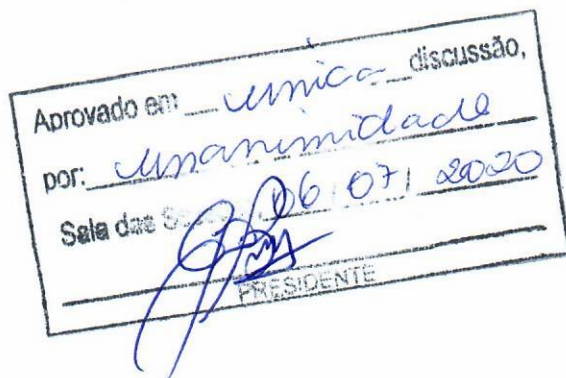 Aprovado em única discussão,
por: unanimidade
Sala das S 06/07/2020
PRESIDENTE